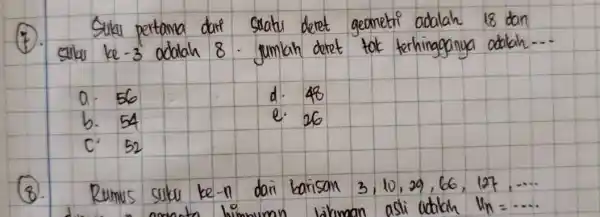 7. Suku pertama dari suatu deret geometri adalah 18 dan
suku ke-3 adalah 8. jumlah deret tak terhingganya adalah ...
a. 56 d. 48
b. 54 e. 26
c. 52
8. Rumus suku ke-n dari barisan 3, 10, 29, 66, 127, ....
himpunan asli adalah Un = ....